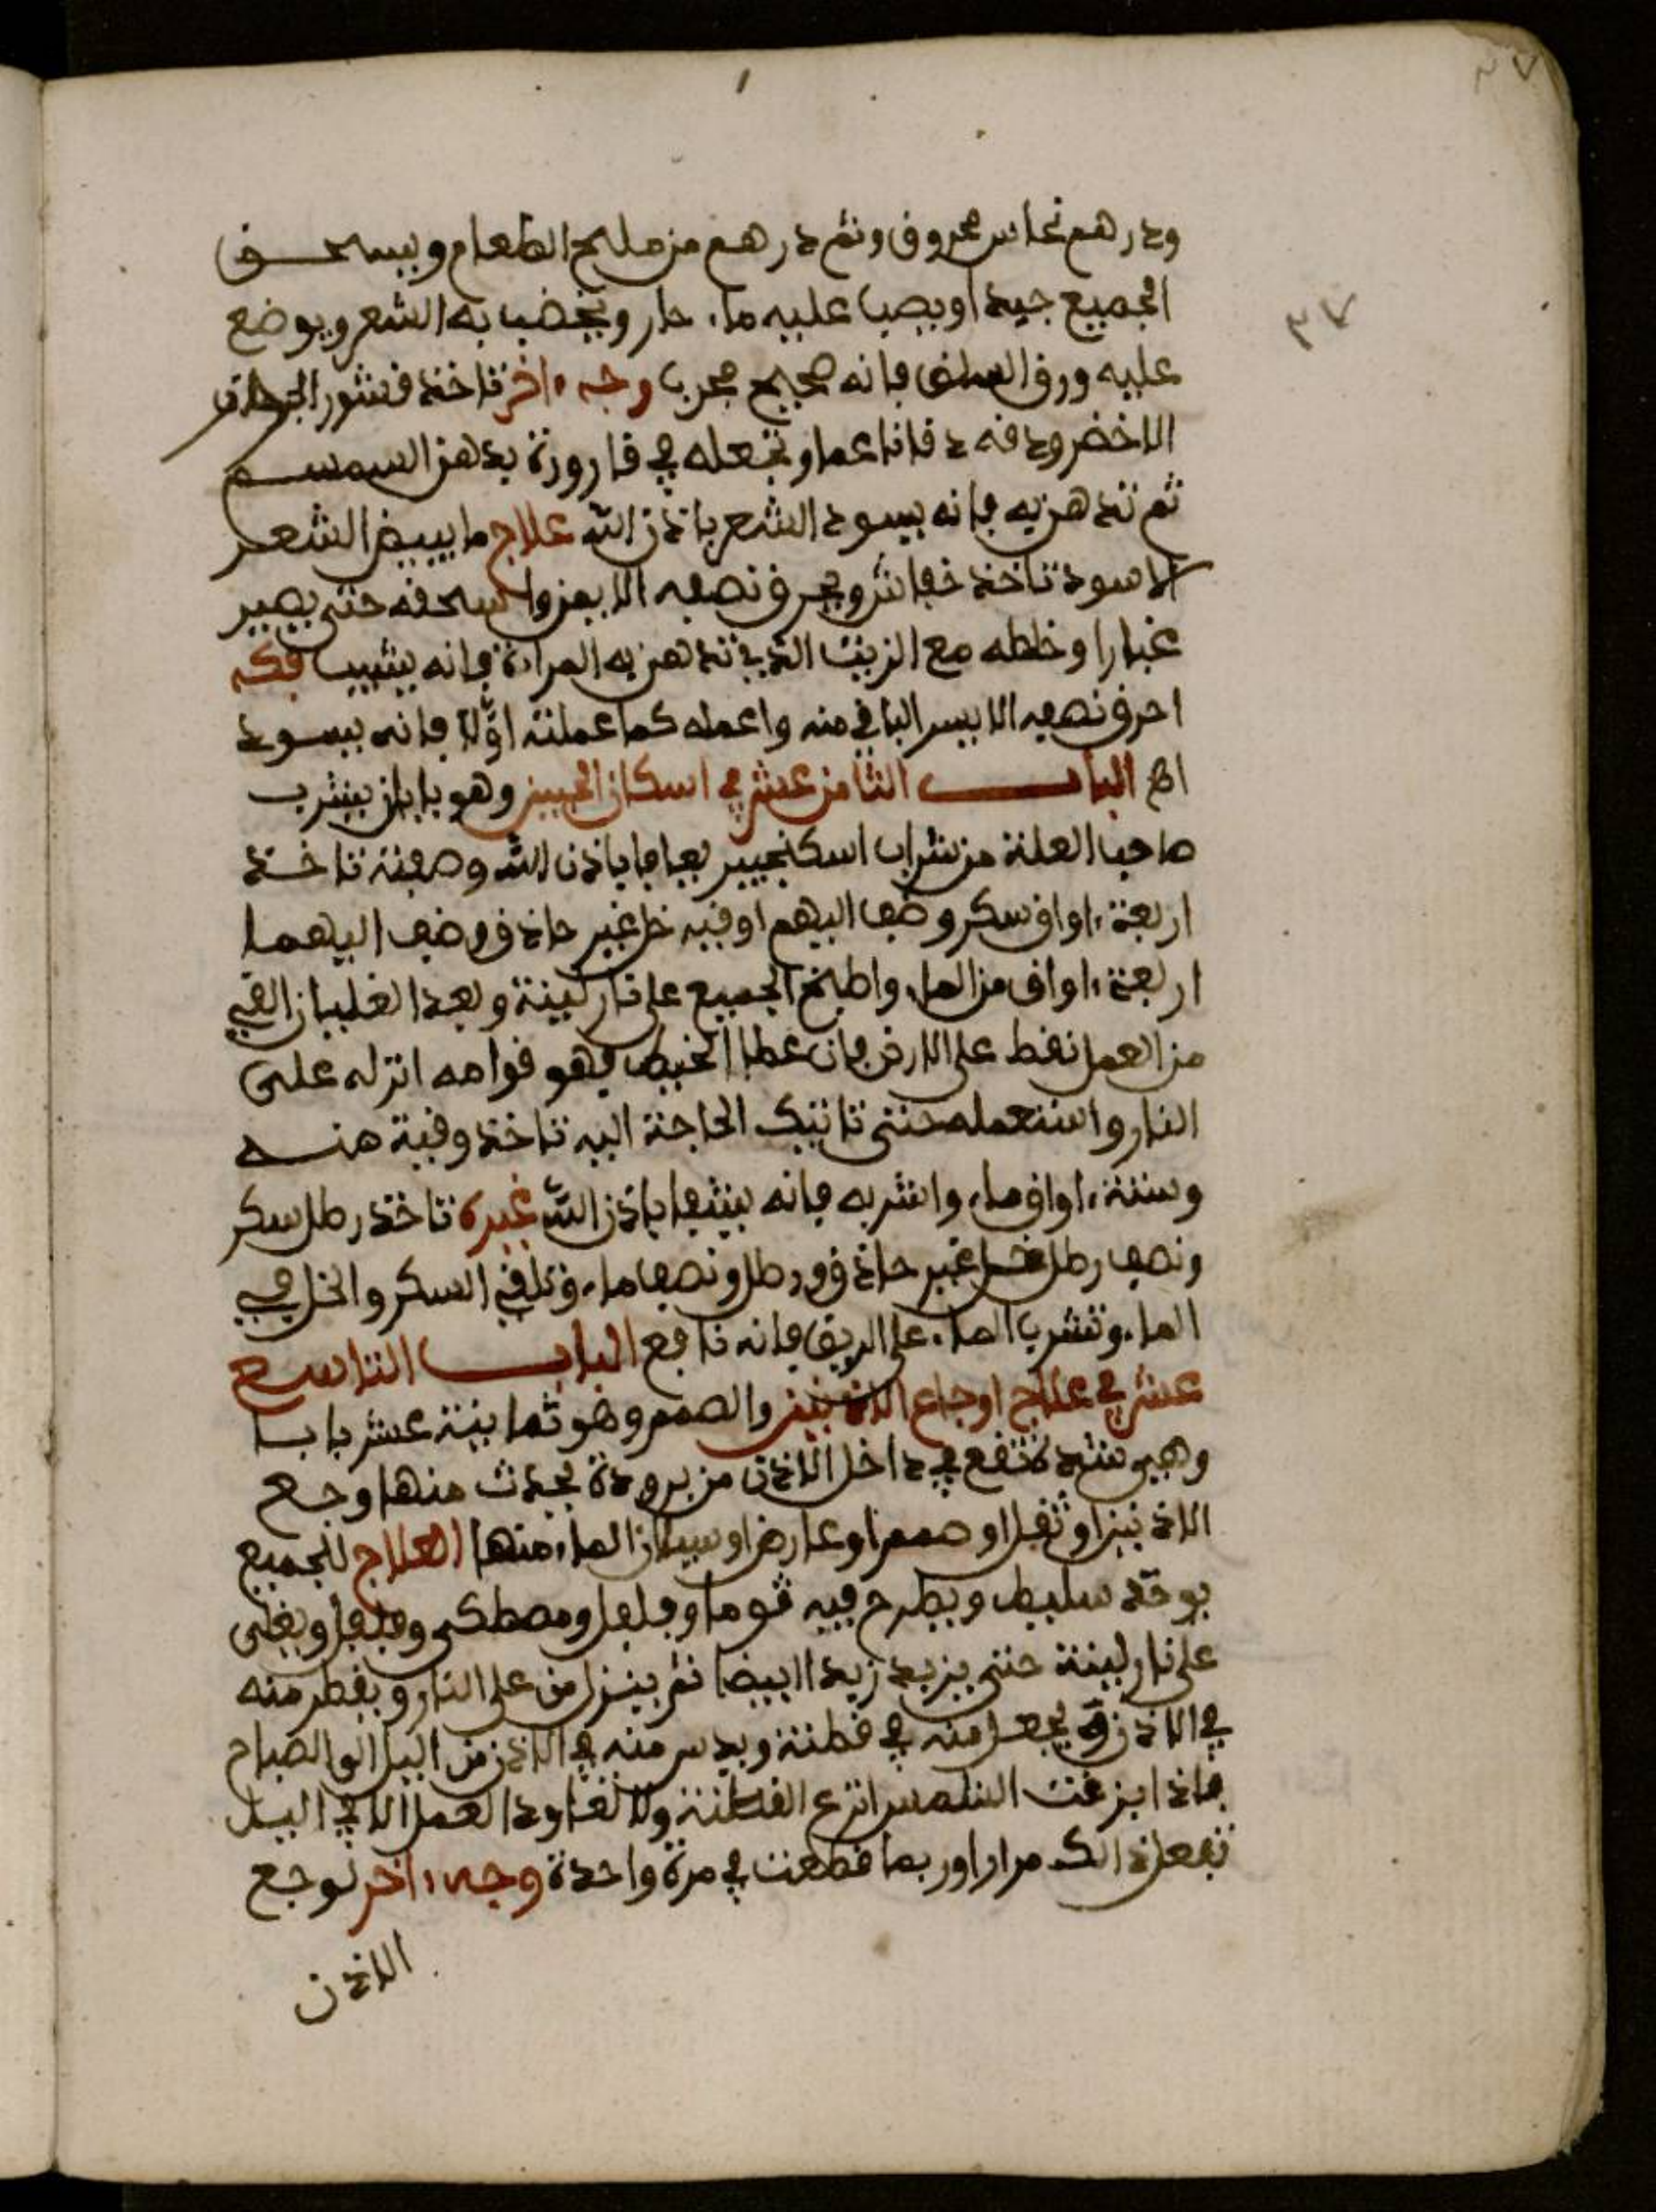 ٣٧
٣٧
ودرهم نحاس محروق وثم درهم من ملح الطعام ويسحق
الجميع جيدا ويصب عليه ماء حار ويخضب به الشعر ويوضع
عليه ورق السلق فانه صحيح مجرب وجه ءاخر تاخذ قشور
الاخضر ودقه دقا ناعما وتجعله في قارورة بدهن السمسم
ثم تدهن به فانه يسود الشعر باذن الله علاج ما يبيض الشعر
الاسود تاخذ خفاش ويحرق نصفه الايمن واسحقه حتى يصير
غبارا وخلطه مع الزيت الذي تدهن به المراة فانه يشيب
احرق نصفه الايسر الباقي منه واعمله كما عملته اوّلا فانه يسود
اﻫ الباب الثامن عشر في اسكان الجبين وهو بابان يشرب
صاحب العلة من شراب اسكنجبير يعافا باذن الله وصفته تاخذ
اربعة ءاواق سكر وضف اليهم اوقيه خل غير حاذق وضف اليهما
اربعة ءاواق من الماء واطبخ الجميع على نار لينة وبعد الغليان القي
من العمل نقط على الارض فان عطا الخيط فهو قوامه انزله على
النار واستعمله حتى تاتيك الحاجة اليه تاخذ وقية منه
وستة ءاواق ماء واشربه فانه يشفا باذن الله غيره تاخذ رطل سكر
ونصف رطل خل غير حاذق ورطل ونصف ماء وتلقي السكر والخل في
الماء وتشرب الماء على الريق فانه نافع الباب التاسع
عشر في علاج اوجاع الاذنين والصمم وهو ثمانية عشر بابا
وهي سدة تقع في داخل الاذن من برودة يحدث منها وجع
الاذنين او ثقل او صمم او عارض او سيلان الماء منها العلاج للجميع
يوخذ سليط ويطرح فيه ثوما وفلفل ومصطكى وفلفل ويغلى
على نار لينة حتى يزبد زبدا ابيضا ثم ينزل من على النار ويقطر منه
في الاذن يجعل منه في قطنة ويدس منه في الاذن من اليل الى الصباح
فاذا بزغت الشمس انزع القطنة ولا العمل الا في اليل
تفعل ذالك مرارا وربما قطعت في مرة واحدة وجه ءاخر لوجع
الاذن